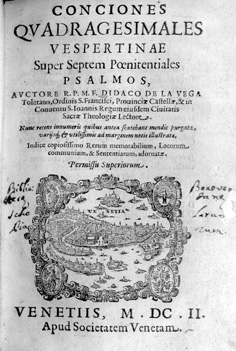 CONCIONES
QVADRAGESIMALES
VESPERTINAE
Super Septem Pœnitentiales
PSALMOS,
AVCTORE R.P.M.F. DIDACO DE LA VEGA
Toletano, Ordinis S. Francisci, Prouinciæ Castellæ, & in
Conuentu S. Ioannis Regum eiusdem Ciuitatis
Sacræ Theologiæ Lectore.
Nunc recens innumeris quibus antea scatebant mendis purgatæ,
varijsq, & vtilissimis ad marginem notis illustratæ,
Indice copiosissimo Rerum memorabilium, Locorum
communium, & Sententiarum, adornatæ.
Permissu Superiorum.
VENETIA
VENETIIS, M. DC. II.
Apud Societatem Venetam.